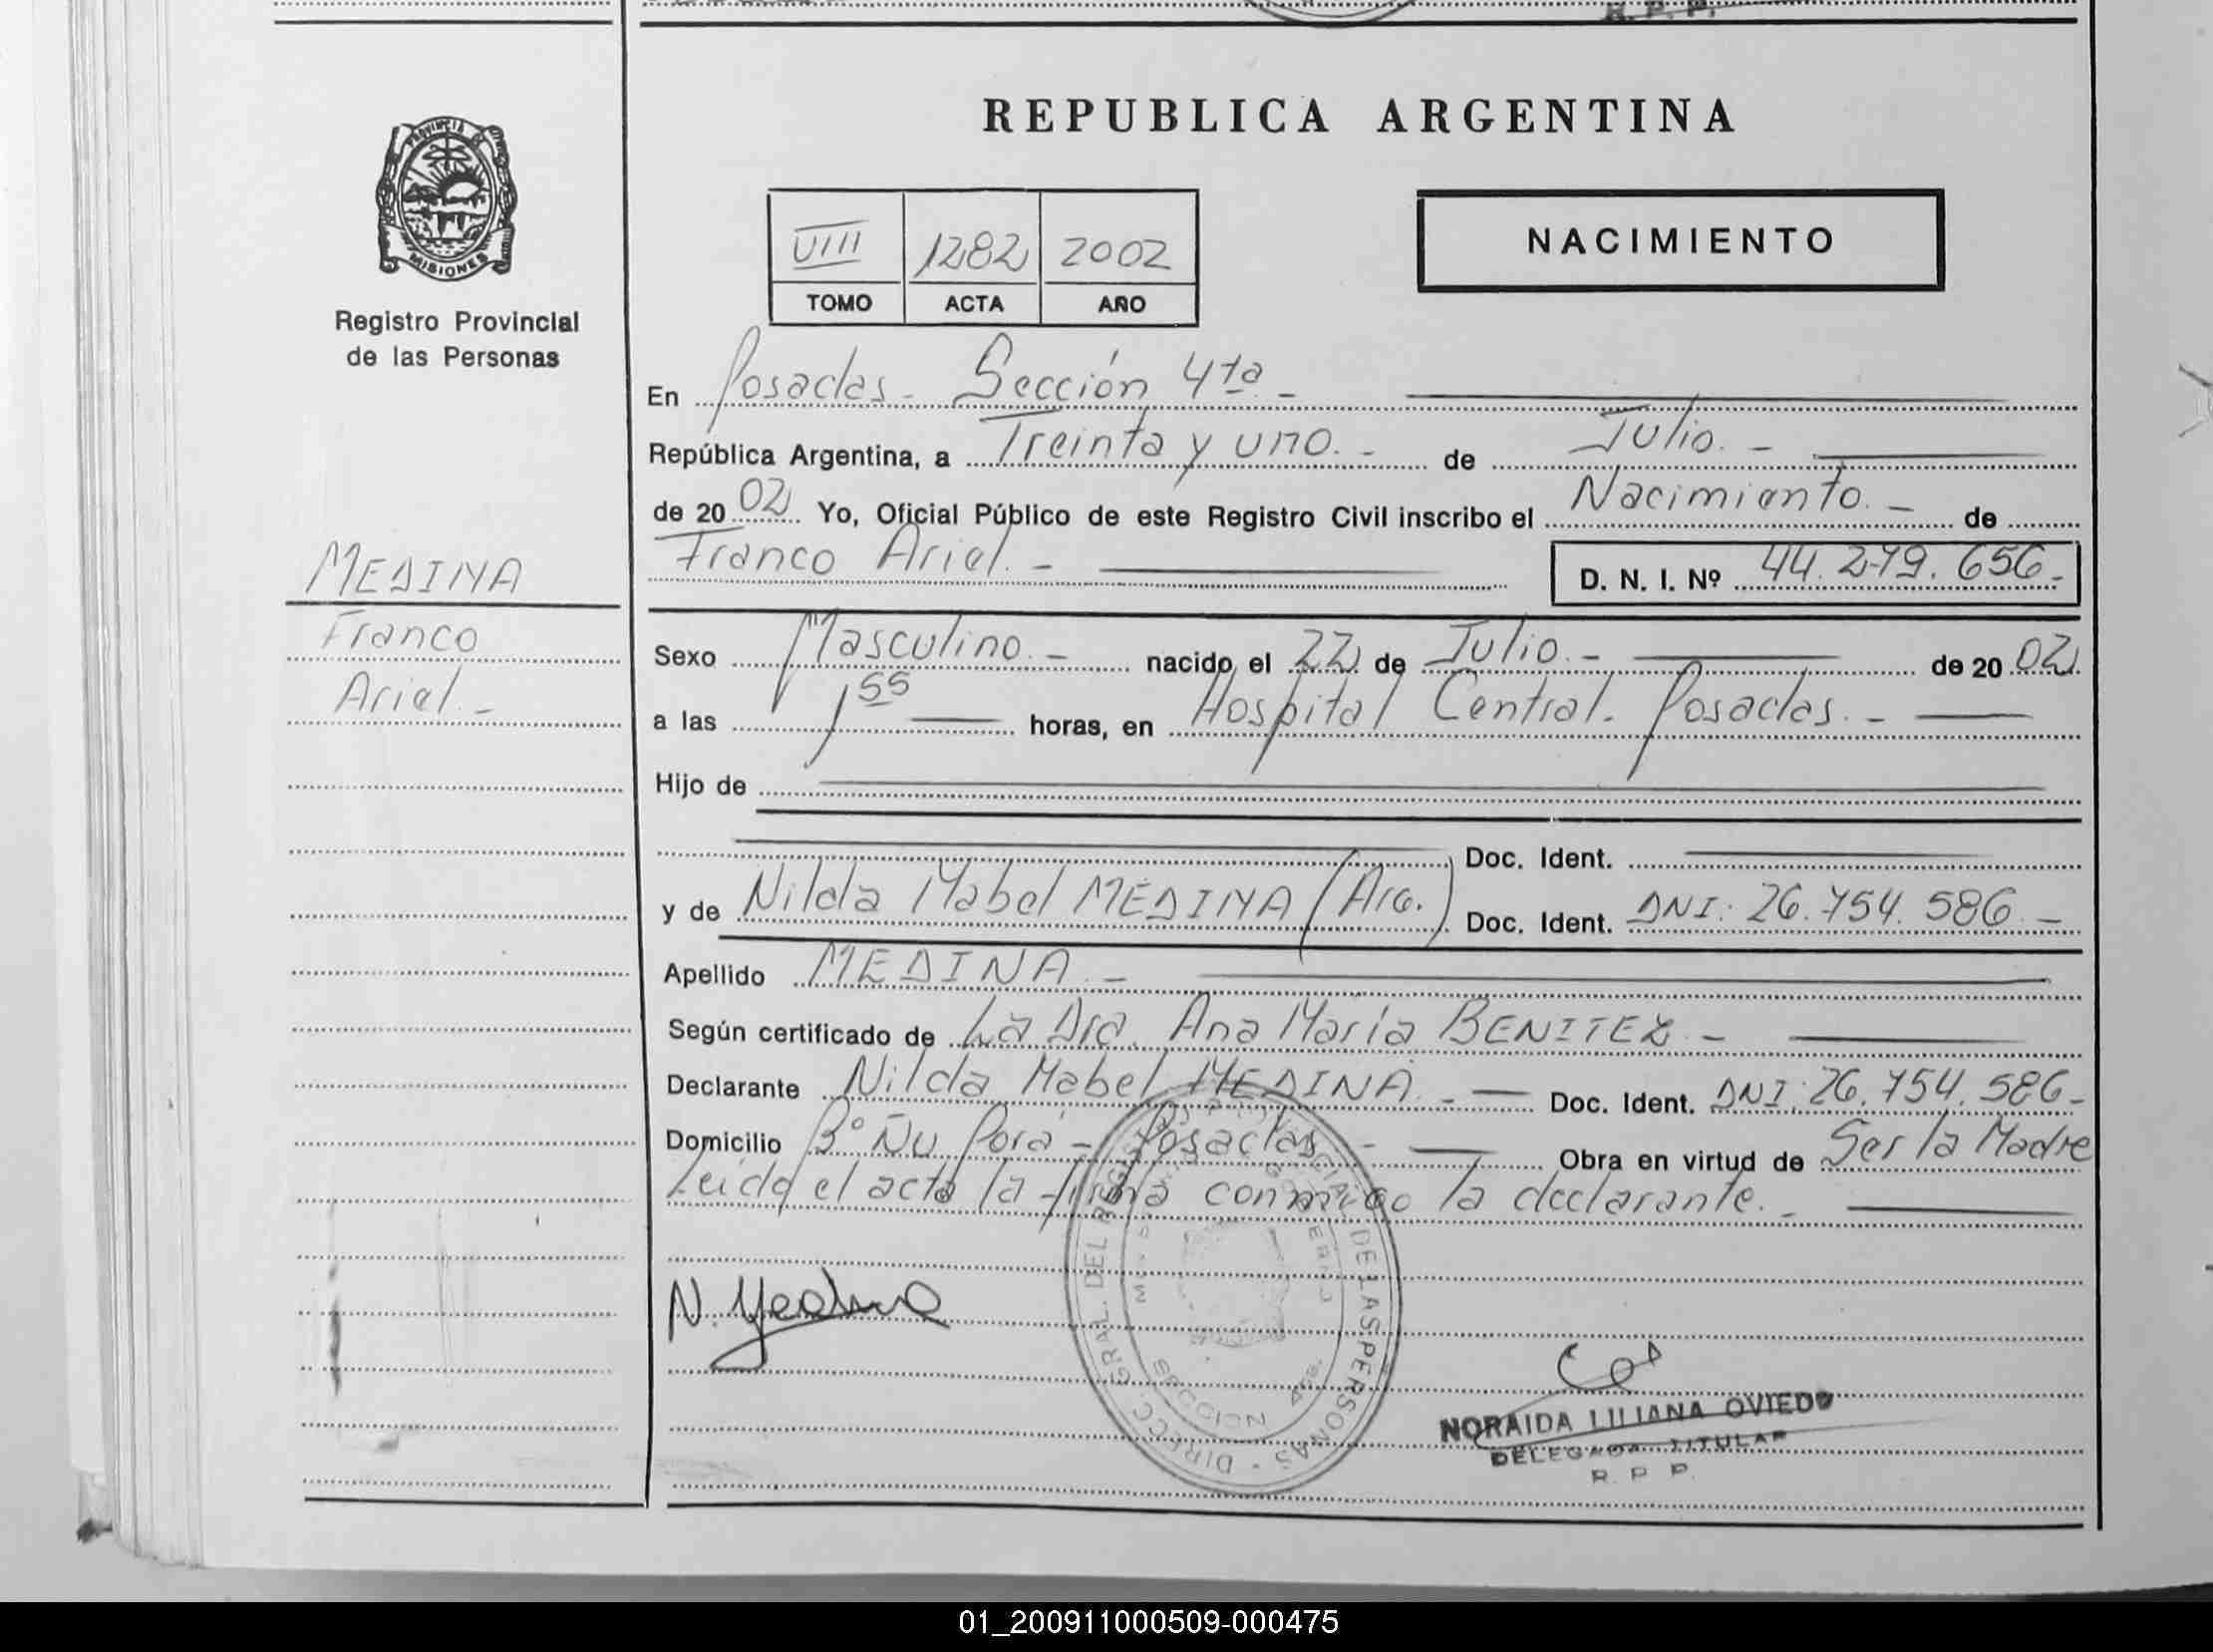 R. P. P.
REPUBLICA ARGENTINA
PROVINCIA DE MISIONES
Registro Provincial
de las Personas
VIII 1282 2002
TOMO ACTA AÑO
NACIMIENTO
MEDINA
Franco
Ariel.-
En Posadas - Sección 4ta -
República Argentina, a Treinta y uno.- de Julio.-
de 2002 Yo, Oficial Público de este Registro Civil inscribo el Nacimiento.- de
Franco Ariel.- D. N. I. Nº 44.279.656-
Sexo Masculino.- nacido el 22 de Julio.- de 2002
a las 1 55 horas, en Hospital Central. Posadas.-
Hijo de
Doc. Ident.
y de Nilda Mabel MEDINA (Arg.) Doc. Ident. DNI: 26.754.586.-
Apellido MEDINA.-
Según certificado de La Dra. Ana María BENITEZ -
Declarante Nilda Mabel MEDINA.- Doc. Ident. DNI: 26.754.586-
Domicilio Bº Ñu Porá - Posadas - Obra en virtud de Ser la Madre
Leída el acta la firma conmigo la declarante.-
N. Medina
DIRECC. GRAL. DEL REGISTRO PROVINCIAL DE LAS PERSONAS
NORAIDA LILIANA OVIEDO
DELEGADA TITULAR
R. P. P.
01_200911000509-000475